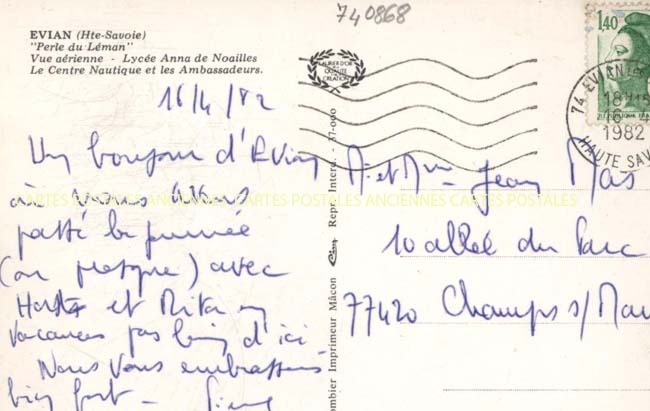 740868
EVIAN (Hte-Savoie)
"Perle du Léman"
Vue aérienne - Lycée Anna de Noailles
Le Centre Nautique et les Ambassadeurs.
LAURIER D'OR
QUALITÉ
CRÉATION
1,40
74 EVIAN
18H
16-4
1982
HAUTE SAV
16/4/82
Un bonjour d'Evian
où nous avons
passé la journée
(ou presque) avec
et Rita en
vacances pas loin d'ici
Nous vous embrassons
bien fort -
CARTES POSTALES ANCIENNES CARTES POSTALES ANCIENNES CARTES POSTALES
M. et Mme Jean Mas
10 allée du Parc
77420 Champs s/Mar
ombier Imprimeur Mâcon Cim Repr. Interd. - 77-000